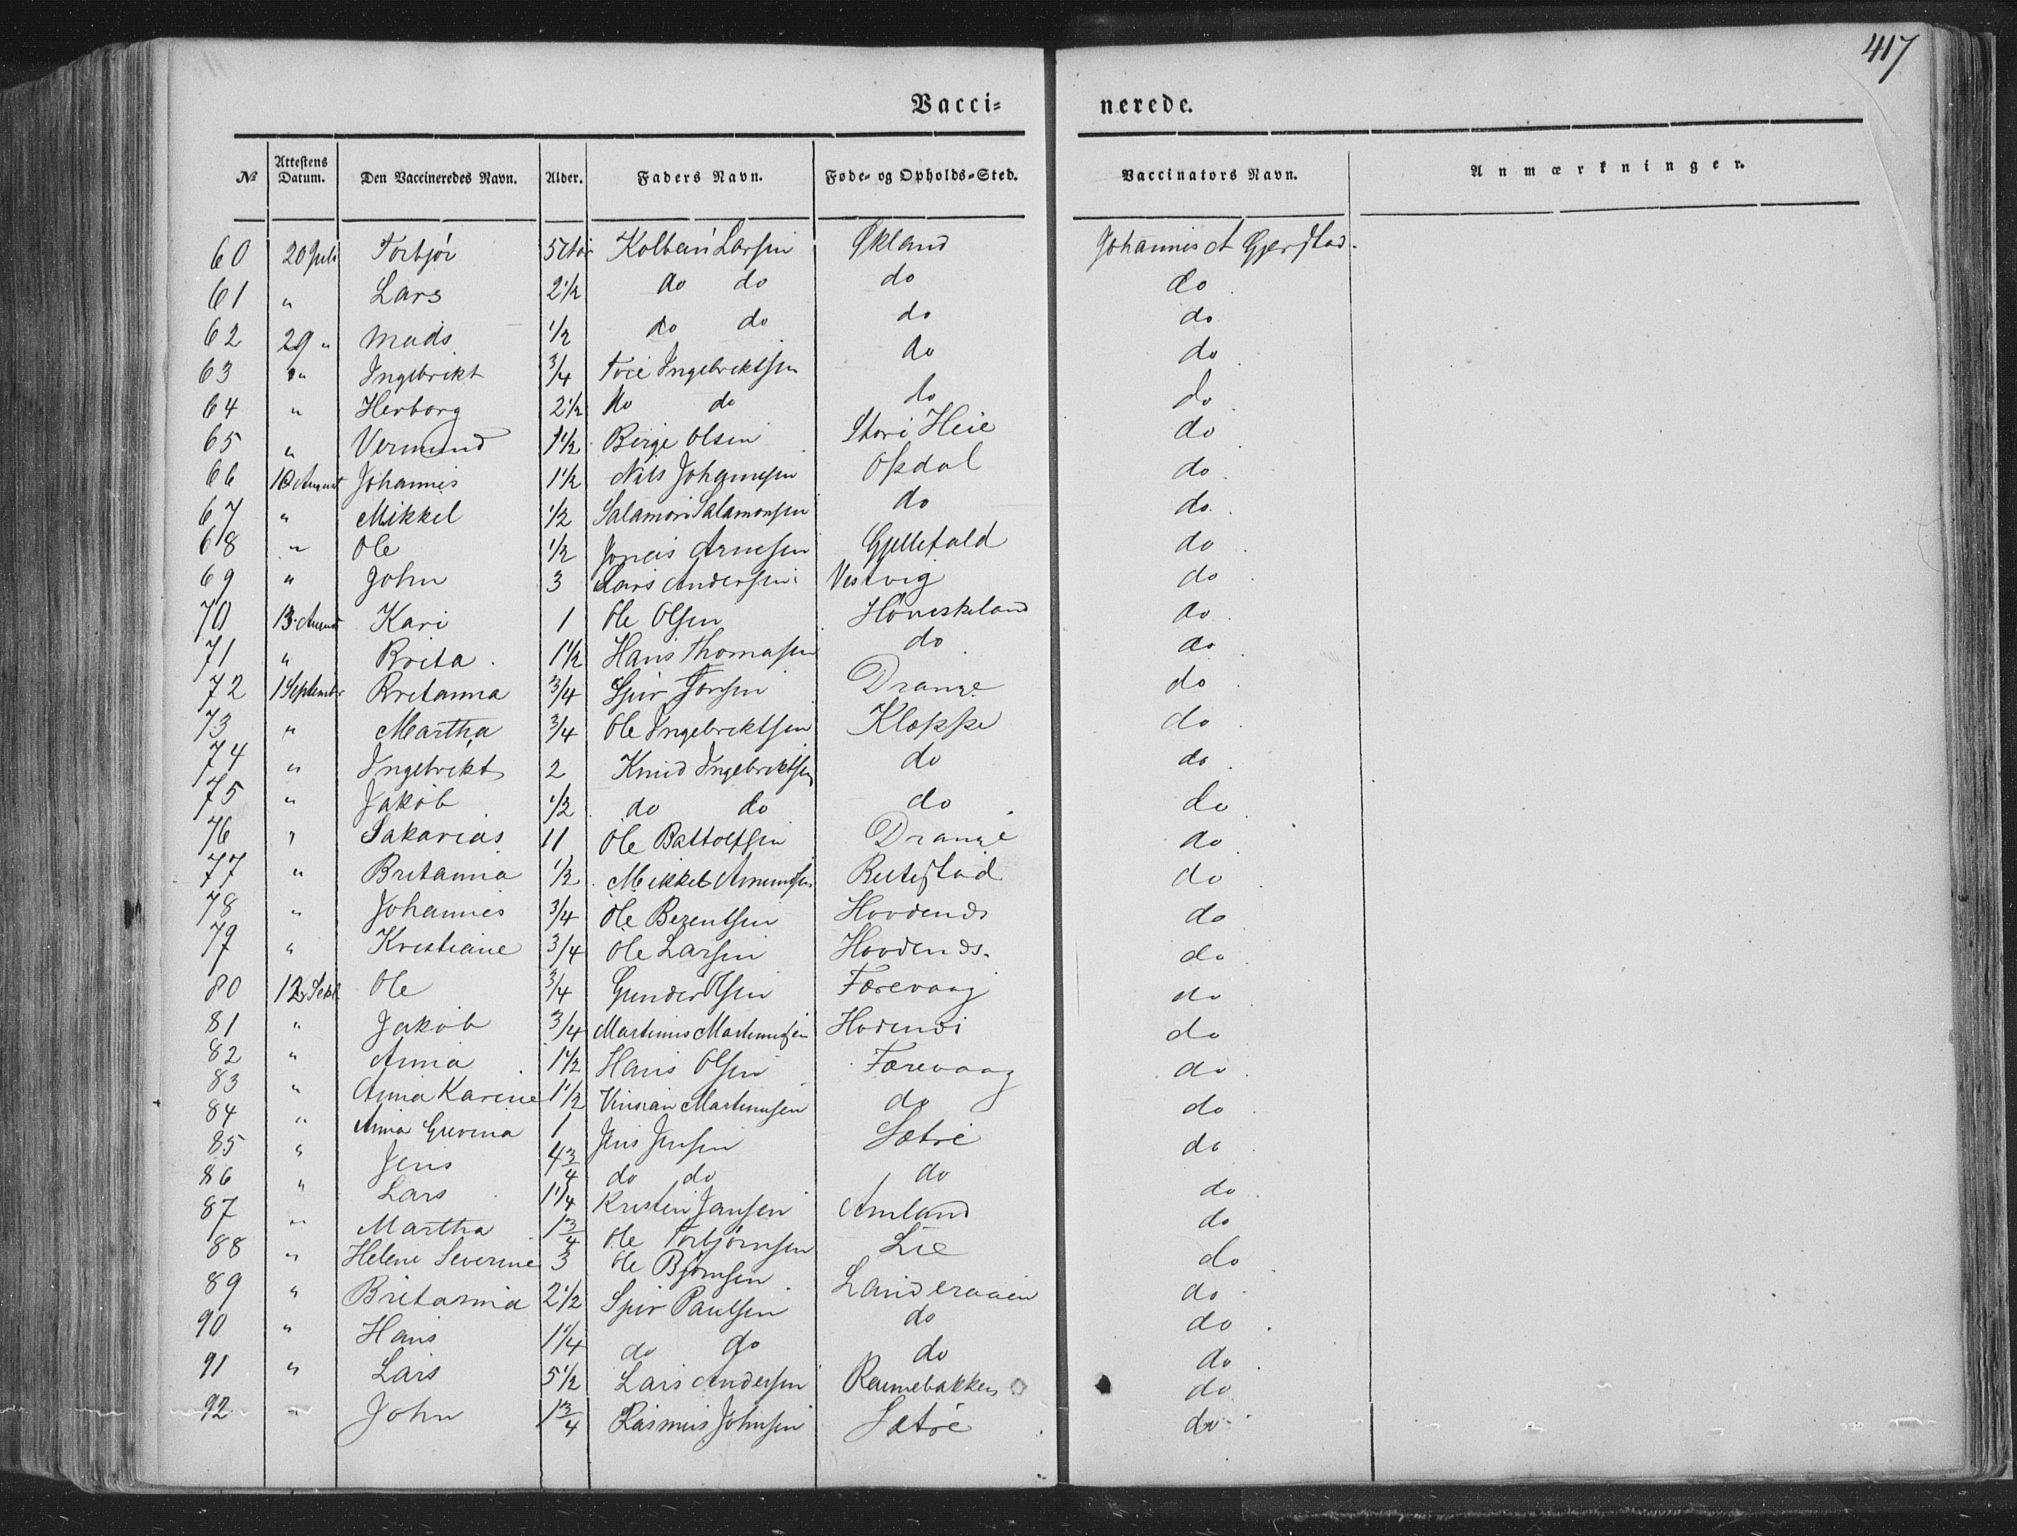 417
Vacci- nerede.
No Attestens Datum. Den Vaccineredes Navn. Alder. Faders Navn. Føde- og Opholds-Sted. Vaccinators Navn. Anmærkninger.
60 20 Juli Torbjør 5 Aar Kolbein Larsen Økland Johannis A Gjerstad.
61 " Lars 2 1/2 do do do do
62 29 " Mads 1/2 do do do do
63 " Ingebrikt 3/4 Toie Ingebriktsen do do
64 " Herborg 2 1/2 do do do do
65 " Vermund 1 1/2 Børge Olsen Stori Heie do
66 10 August Johannis 1 1/2 Nils Johannesen Opdal do
67 " Mikkel 1/2 Salamon Salamonsen do do
68 " Ole 1/2 Jonas Arnesen Gjellefald do
69 " John 3 Lars Andersen Vestvig do
70 13 August Kari 1 Ole Olsen Høviskeland do
71 " Brita 1 1/2 Hans Thomasen do do
72 1 September Britanna 3/4 Spir Jonsen Drange do
73 " Martha 3/4 Ole Ingebriktsen Kloppe do
74 " Ingebrikt 2 Knud Ingebriktsen do do
75 " Jakob 1/2 do do do do
76 " Sakarias 11 Ole Battolfsen Drange do
77 " Britanna 1/2 Mikkel Amundsen Rutestad do
78 " Johannes 3/4 Ole Berentsen Hovdenes do
79 " Kristiane 3/4 Ole Larsen Hovdenæs. do
80 12 Sept Ole 3/4 Gunder Olsen Færevaag do
81 " Jakob 3/4 Martinus Martinusen do
82 " Anna 1 1/2 Hans Olsen Færevaag do
83 " Anna Karine 1 1/2 Martinusen do do
84 " Anna Gurina 1 Jens Jensen Sætre do
85 " Jens 4 3/4 do do do do
86 " Lars 1 1/4 Kristen Jansen Amland do
87 " Martha 1 3/4 Ole Torbjørnsen Lie do
88 " Helene Severine 3 Ole Bjørnsen Landeraaen do
89 " Britanna 2 1/2 Spir Paulsen do do
90 " Hans 1 1/4 do do do do
91 " Lars 5 1/2 Lars Andersen Rennebakken do
92 " John 1 3/4 Rasmus Johnsen Sætre do